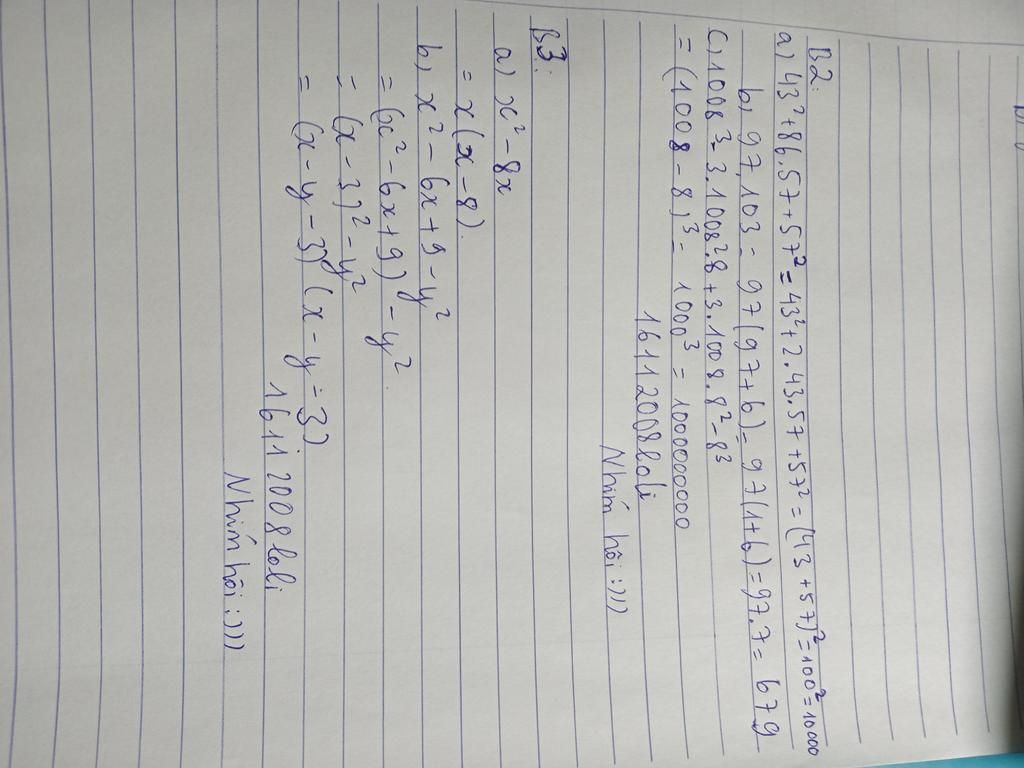 B2:
a) 43² + 86.57 + 57² = 43² + 2.43.57 + 57² = (43 + 57)² = 100² = 10000
b, 97.103 = 97(97+6) = 97(1+6) = 97.7 = 679
c, 1008³ - 3.1008².8 + 3.1008.8² - 8³
= (1008 - 8)³ = 1000³ = 1000000000
16112008loli
Nhím hôi :)))
B3:
a) x² - 8x
= x(x - 8).
b, x² - 6x + 9 - y²
= (x² - 6x + 9) - y².
= (x - 3)² - y²
= (x - y - 3)(x - y - 3)
16112008loli
Nhím hôi :)))